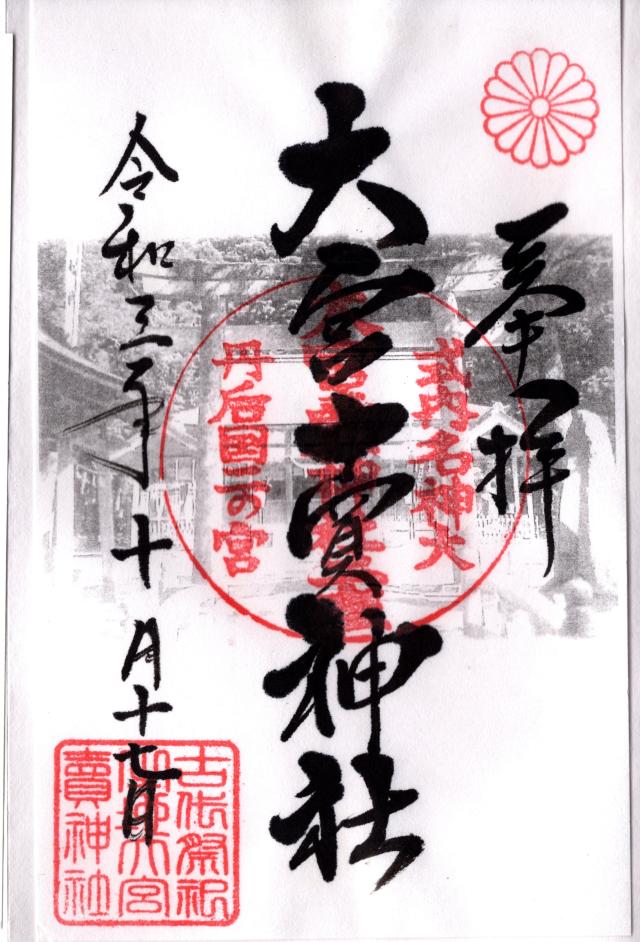 奉拝
式内名神大
大宮賣神社
丹后国二の宮
令和三年十月十七日
古代祭祀
大宮
賣神社